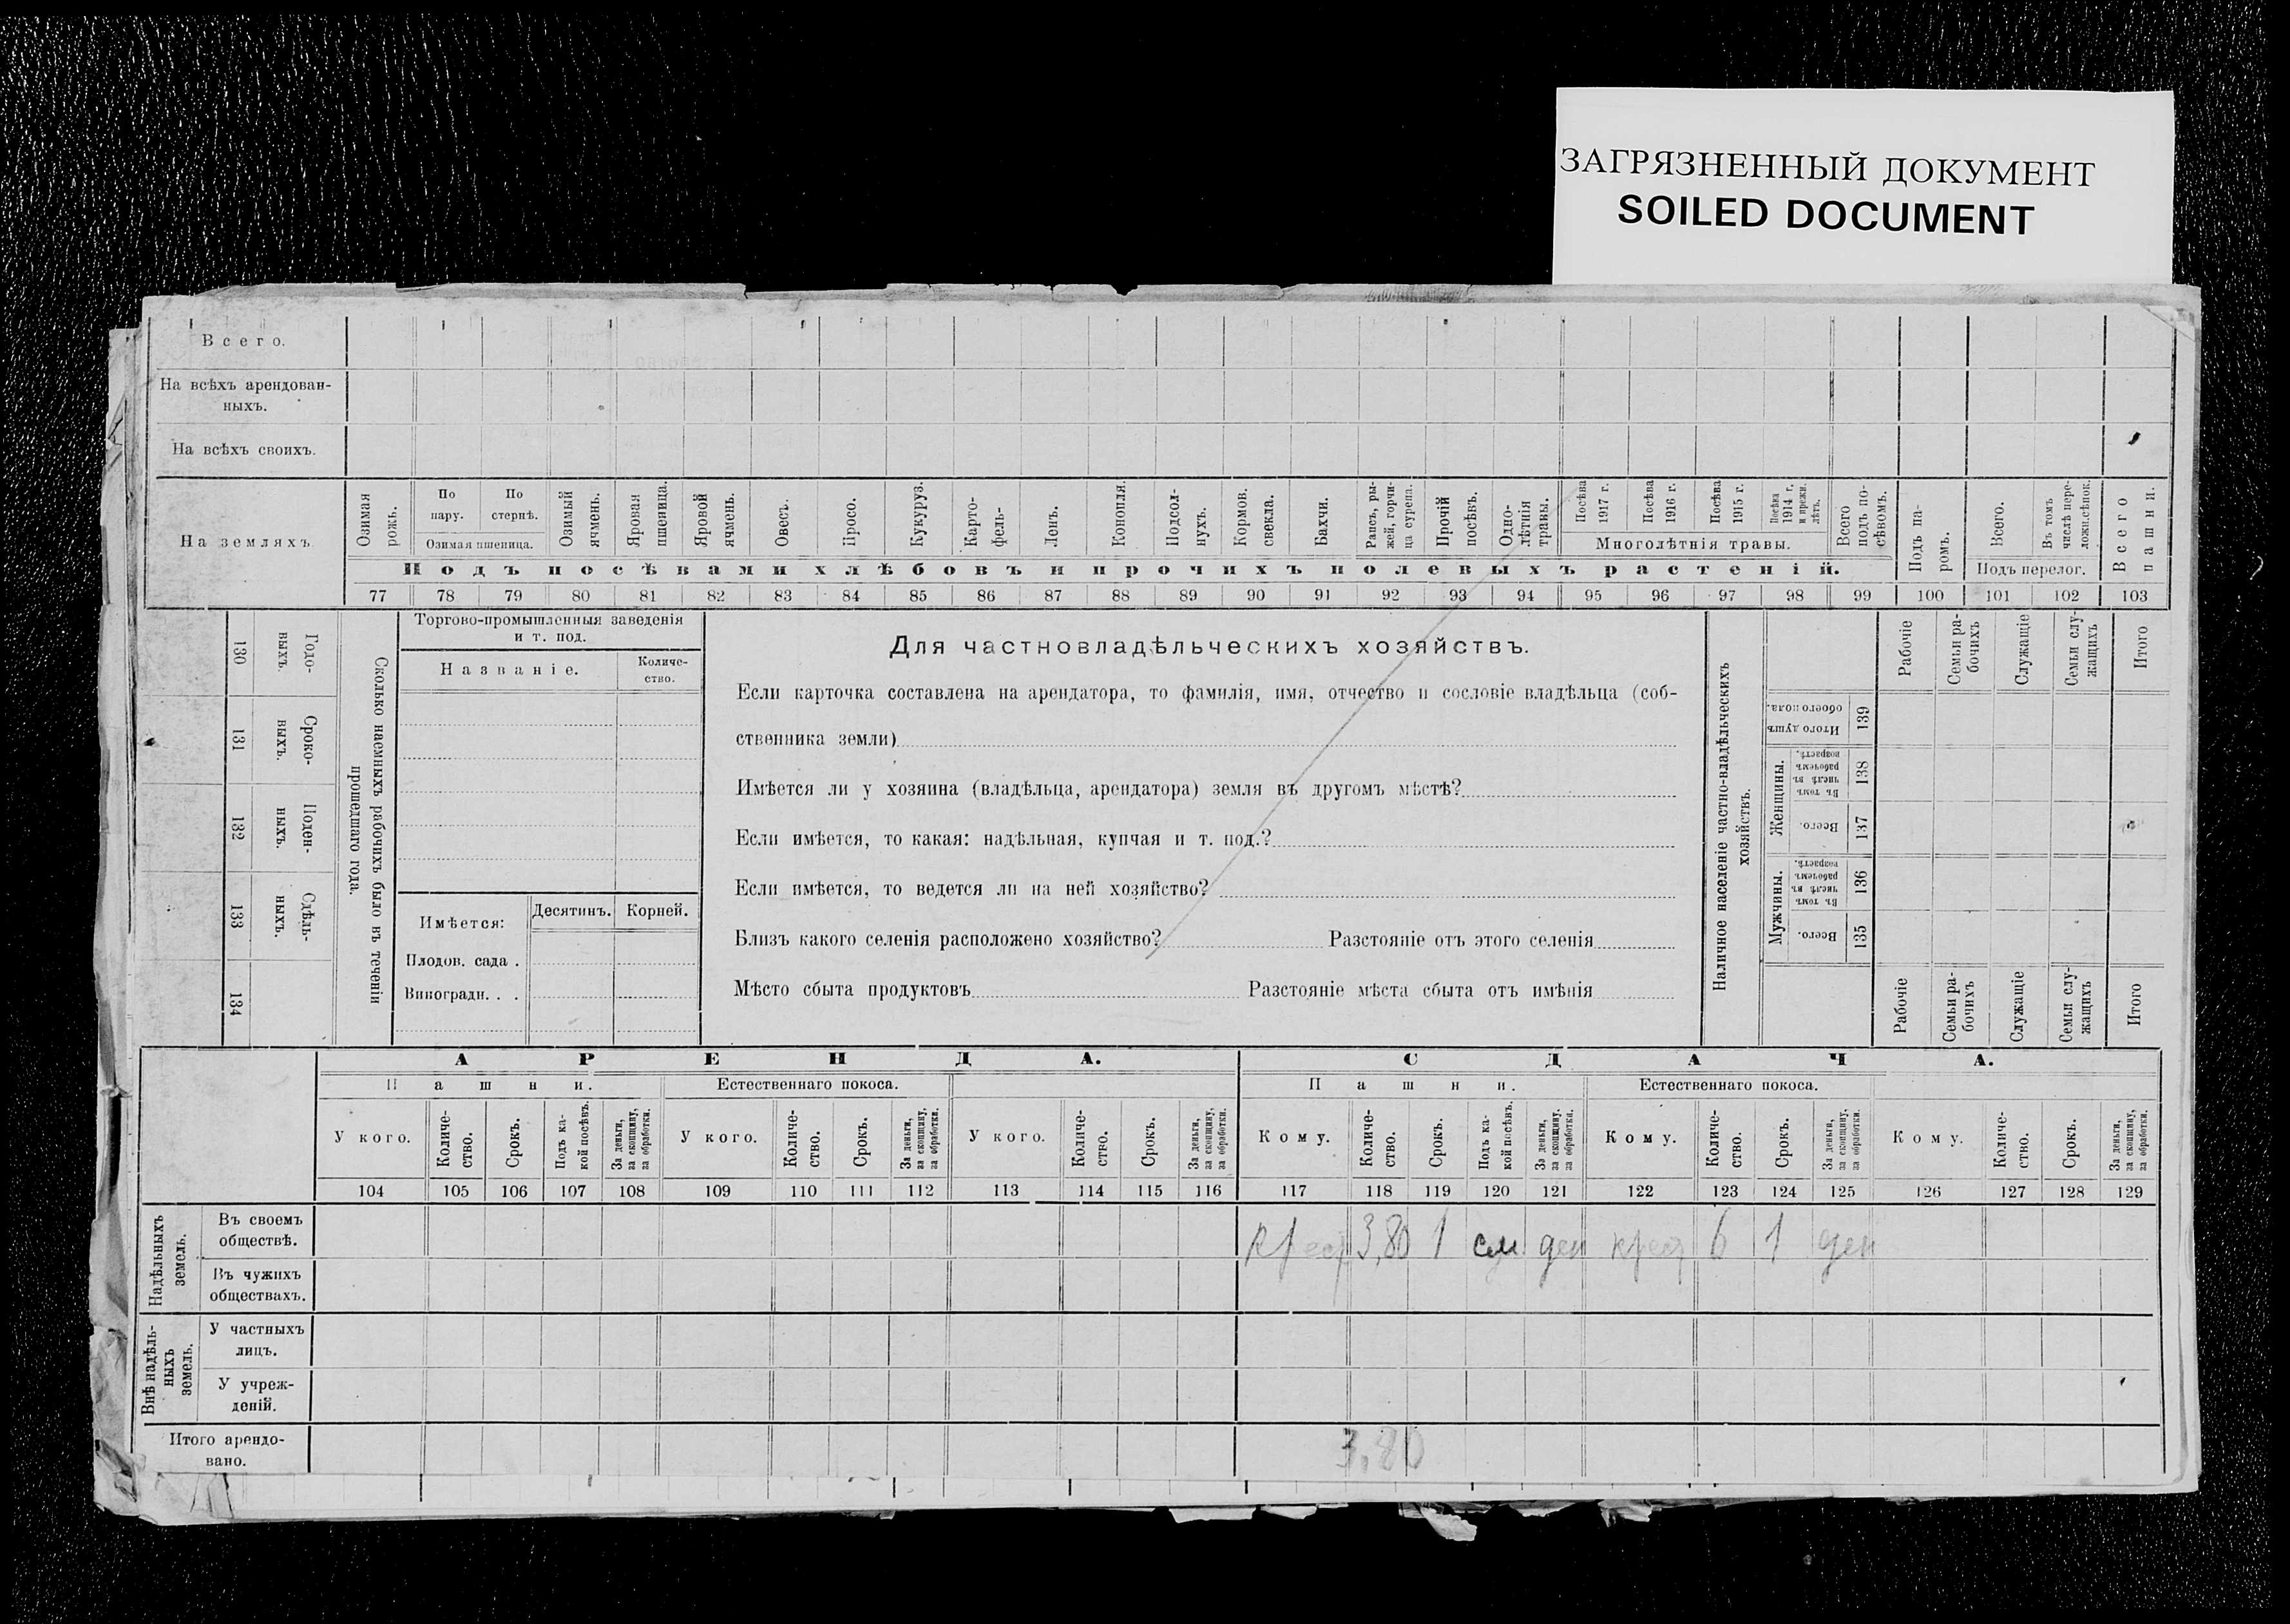 ЗАГРЯЗНЕННЫЙ ДОКУМЕНТ
SOILED DOCUMENT
Всего.
На всѣхъ арендован-
ныхъ.
На всѣхъ своихъ.
На земляхъ
Озимая рожь.
По пару.
По стернѣ.
Озимая пшеница.
Озимый ячмень.
Яровая пшеница.
Яровой ячмень.
Овесъ.
Просо.
Кукуруз.
Карто-
фель-
Ленъ.
Конопля.
Подсол-
нухъ.
Кормов. свекла.
Бахчи.
Рапсъ, ры-
жей, горчи-
ца сурепа.
Прочій посѣвъ.
Одно-
лѣтнія травы.
Посѣва 1917 г.
Посѣва 1916 г.
Посѣва 1915 г.
Посѣва 1914 г. и прежн. лѣтъ.
Многолѣтнія травы.
Всего подъ по-
сѣвомъ.
Подъ па-
ромъ.
Всего.
Въ томъ числѣ пере-
ложн. сѣнок.
Подъ перелог.
Всего пашни.
Подъ посѣвами хлѣбовъ и прочихъ полевыхъ растеній.
77 78 79 80 81 82 83 84 85 86 87 88 89 90 91 92 93 94 95 96 97 98 99 100 101 102 103
130 Годо-
выхъ.
131 Сроко-
выхъ.
132 Поден-
ныхъ.
133 Сдѣль-
ныхъ.
134
Сколько наемныхъ рабочихъ было въ теченіи
прошедшаго года.
Торгово-промышленныя заведенія
и т. под.
Названіе.
Количе-
ство.
Имѣется:
Десятинъ.
Корней.
Плодов. сада .
Виноградн. . .
Для частновладѣльческихъ хозяйствъ.
Если карточка составлена на арендатора, то фамилія, имя, отчество и сословіе владѣльца (соб-
ственника земли)
Имѣется ли у хозяина (владѣльца, арендатора) земля въ другомъ мѣстѣ?
Если имѣется, то какая: надѣльная, купчая и т. под.?
Если имѣется, то ведется ли на ней хозяйство?
Близъ какого селенія расположено хозяйство? Разстояніе отъ этого селенія
Мѣсто сбыта продуктовъ Разстояніе мѣста сбыта отъ имѣнія
Наличное населеніе частно-владѣльческихъ
хозяйствъ.
Рабочіе
Семьи ра-
бочихъ
Служащіе
Семьи слу-
жащихъ
Итого
Итого душъ обоего пола.
139
Женщины.
Въ томъ числѣ въ рабочемъ возрастѣ.
138
Всего.
137
Мужчины.
Въ томъ числѣ въ рабочемъ возрастѣ.
136
Всего.
135
Рабочіе
Семьи ра-
бочихъ
Служащіе
Семьи слу-
жащихъ
Итого
АРЕНДА.
СДАЧА.
Пашни.
Естественнаго покоса.
Пашни.
Естественнаго покоса.
У кого.
Количе-
ство.
Срокъ.
Подъ ка-
кой посѣвъ.
За деньги, за скопщину, за обработки.
У кого.
Количе-
ство.
Срокъ.
За деньги, за скопщину, за обработки.
У кого.
Количе-
ство.
Срокъ.
За деньги, за скопщину, за обработки.
Кому.
Количе-
ство.
Срокъ.
Подъ ка-
кой посѣвъ.
За деньги, за скопщину, за обработки.
Кому.
Количе-
ство.
Срокъ.
За деньги, за скопщину, за обработки.
Кому.
Количе-
ство.
Срокъ.
За деньги, за скопщину, за обработки.
104 105 106 107 108 109 110 111 112 113 114 115 116 117 118 119 120 121 122 123 124 125 126 127 128 129
Надѣльныхъ
земель.
Въ своемъ
обществѣ.
крест 3,80 1 см ден крест 6 1 ден
Въ чужихъ
обществахъ.
Внѣ надѣль-
ныхъ
земель.
У частныхъ
лицъ.
У учреж-
деній.
Итого арендо-
вано.
3,80